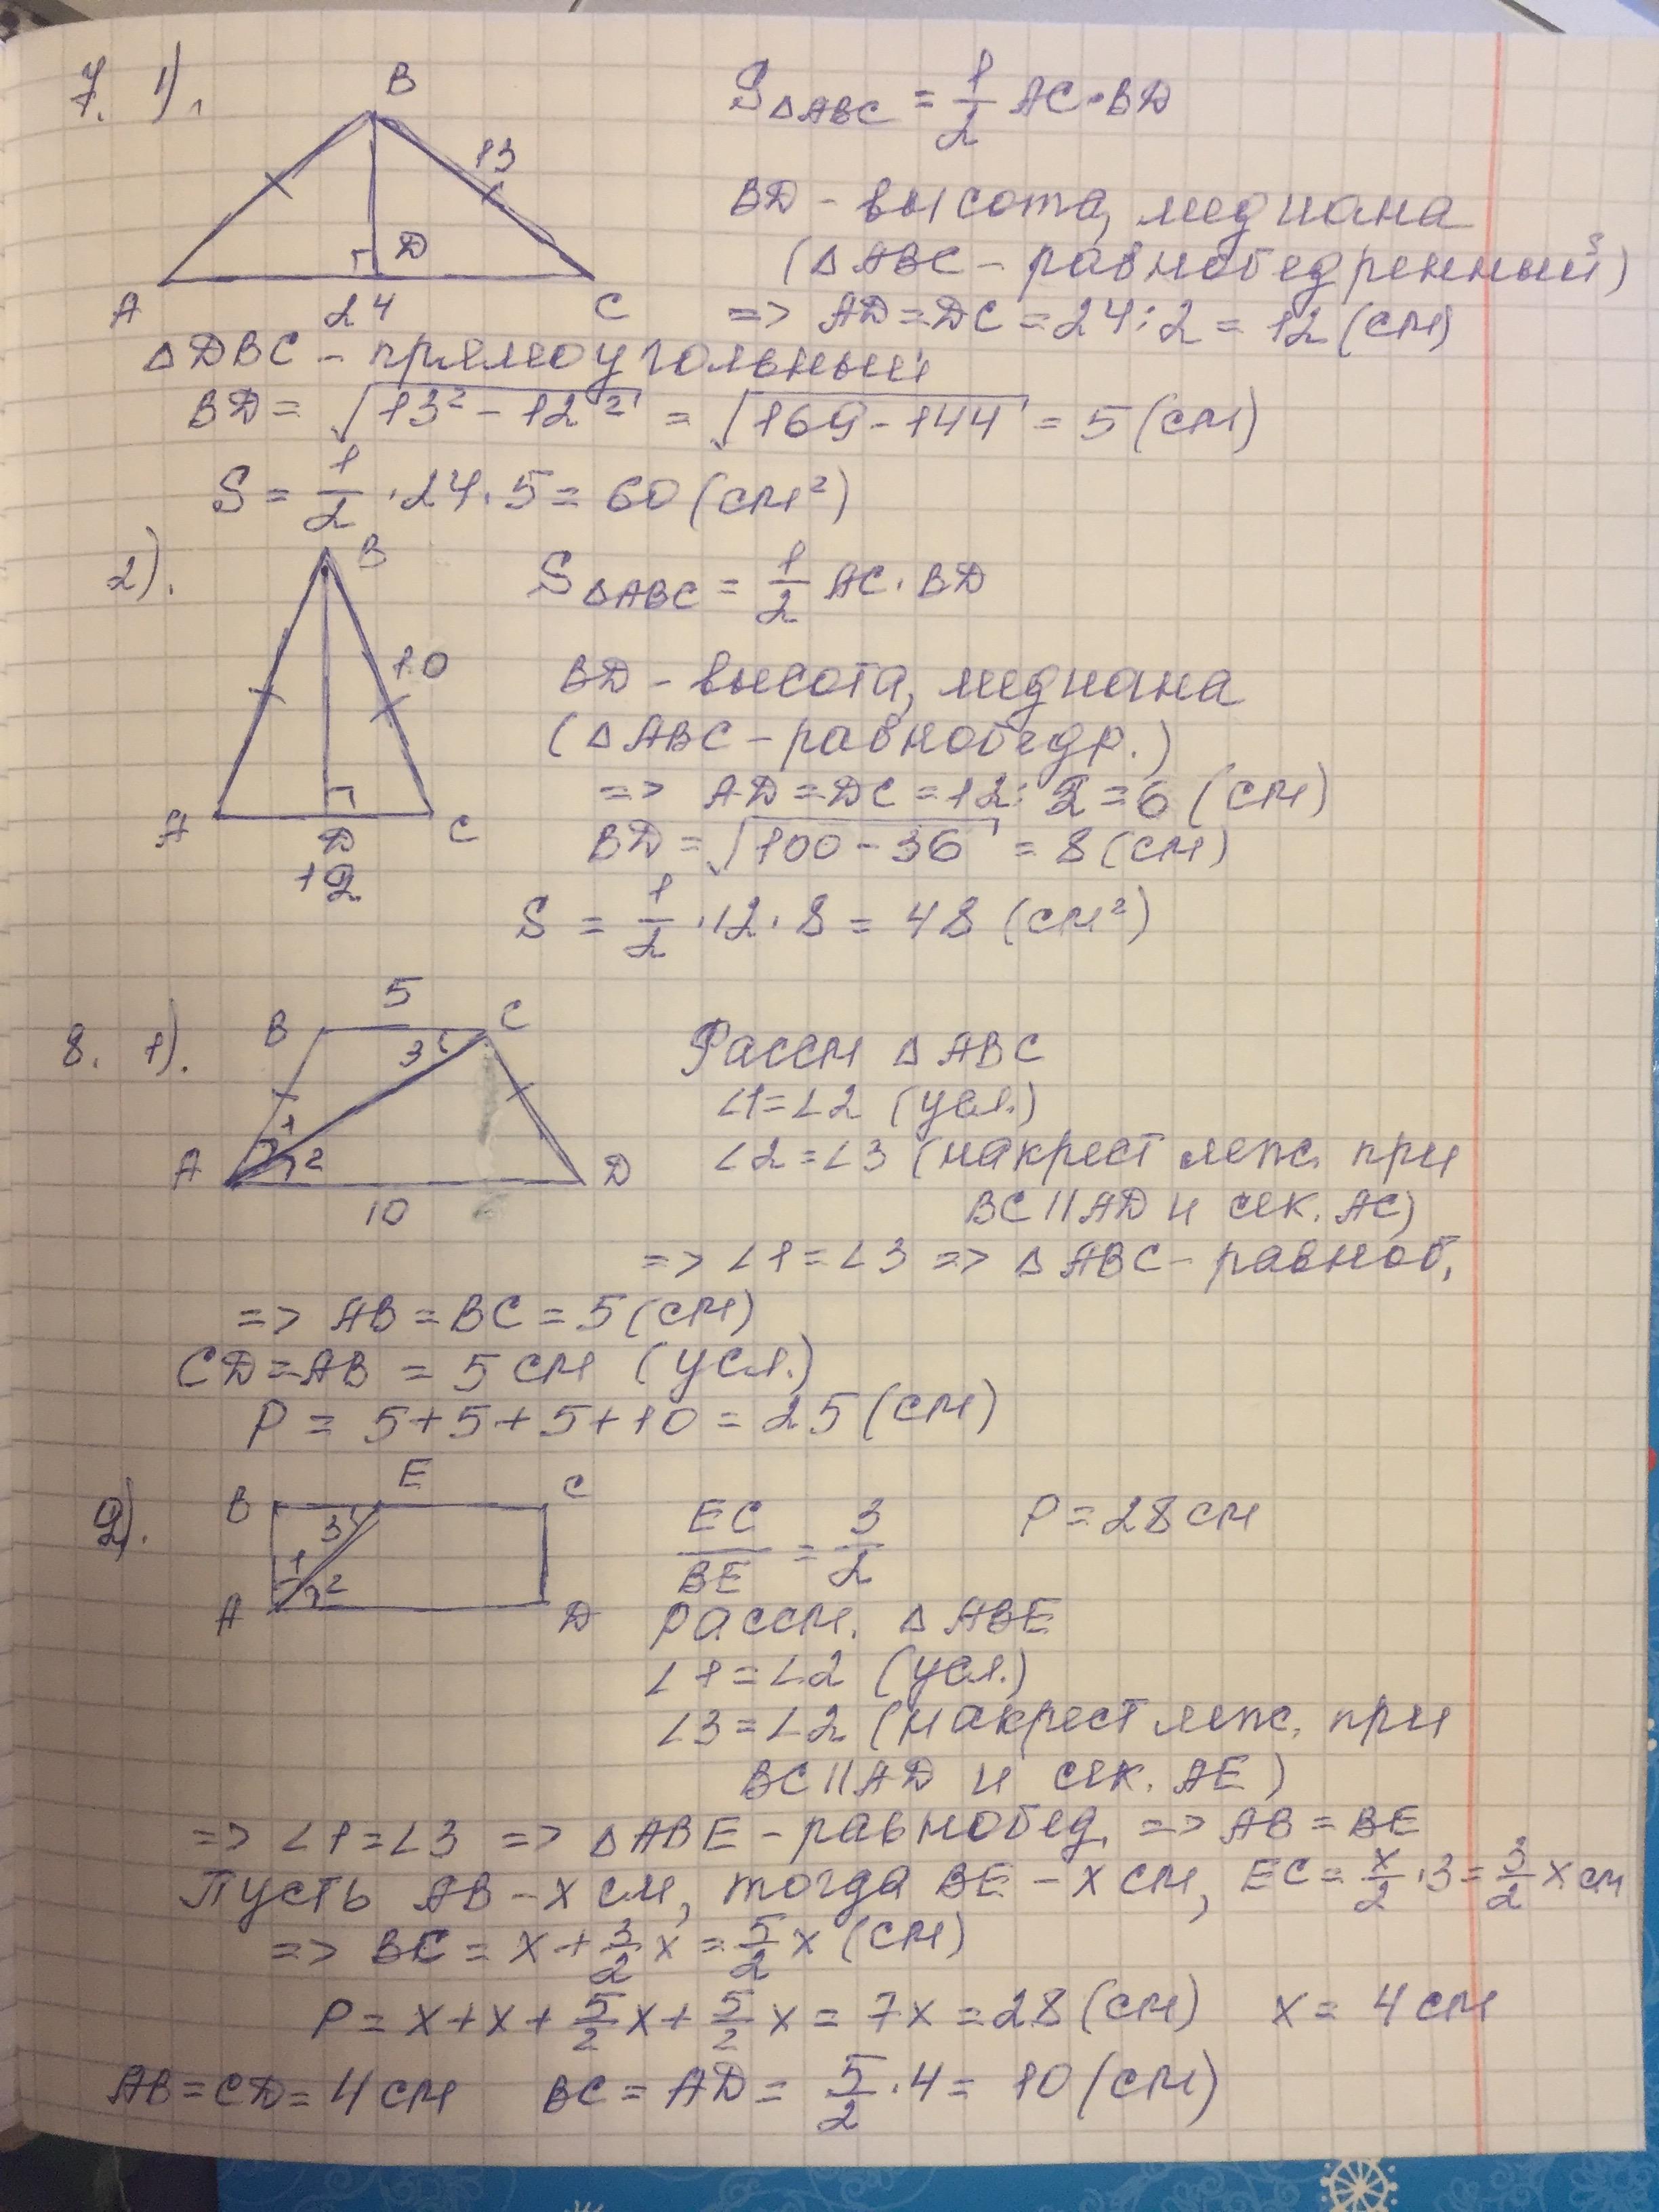 7. 1).
B
13
D
A
24
C
S△ABC = 1/2 AC·BD
BD - высота, медиана
(△ABC - равнобедренный)
=> AD = DC = 24:2 = 12 (см)
△DBC - прямоугольный
BD = √(13² - 12²) = √(169 - 144) = 5 (см)
S = 1/2 · 24 · 5 = 60 (см²)
2).
B
10
A
D
C
12
S△ABC = 1/2 AC · BD
BD - высота, медиана
(△ABC - равнобедр.)
=> AD = DC = 12 : 2 = 6 (см)
BD = √(100 - 36) = 8 (см)
S = 1/2 · 12 · 8 = 48 (см²)
8. 1).
5
B
C
3
1
2
A
D
10
Рассм △ABC
∠1 = ∠2 (усл.)
∠2 = ∠3 (накрест леж. при
BC || AD и сек. AC)
=> ∠1 = ∠3 => △ABC - равноб.
=> AB = BC = 5 (см)
CD = AB = 5 см (усл.)
P = 5 + 5 + 5 + 10 = 25 (см)
2).
B
E
C
3
1
2
A
D
EC/BE = 3/2
P = 28 см
Рассм. △ABE
∠1 = ∠2 (усл.)
∠3 = ∠2 (накрест леж. при
BC || AD и сек. AE)
=> ∠1 = ∠3 => △ABE - равнобед. => AB = BE
Пусть AB - x см, тогда BE - x см, EC = x/2 · 3 = 3/2 x см
=> BC = x + 3/2 x = 5/2 x (см)
P = x + x + 5/2 x + 5/2 x = 7x = 28 (см) x = 4 см
AB = CD = 4 см BC = AD = 5/2 · 4 = 10 (см)